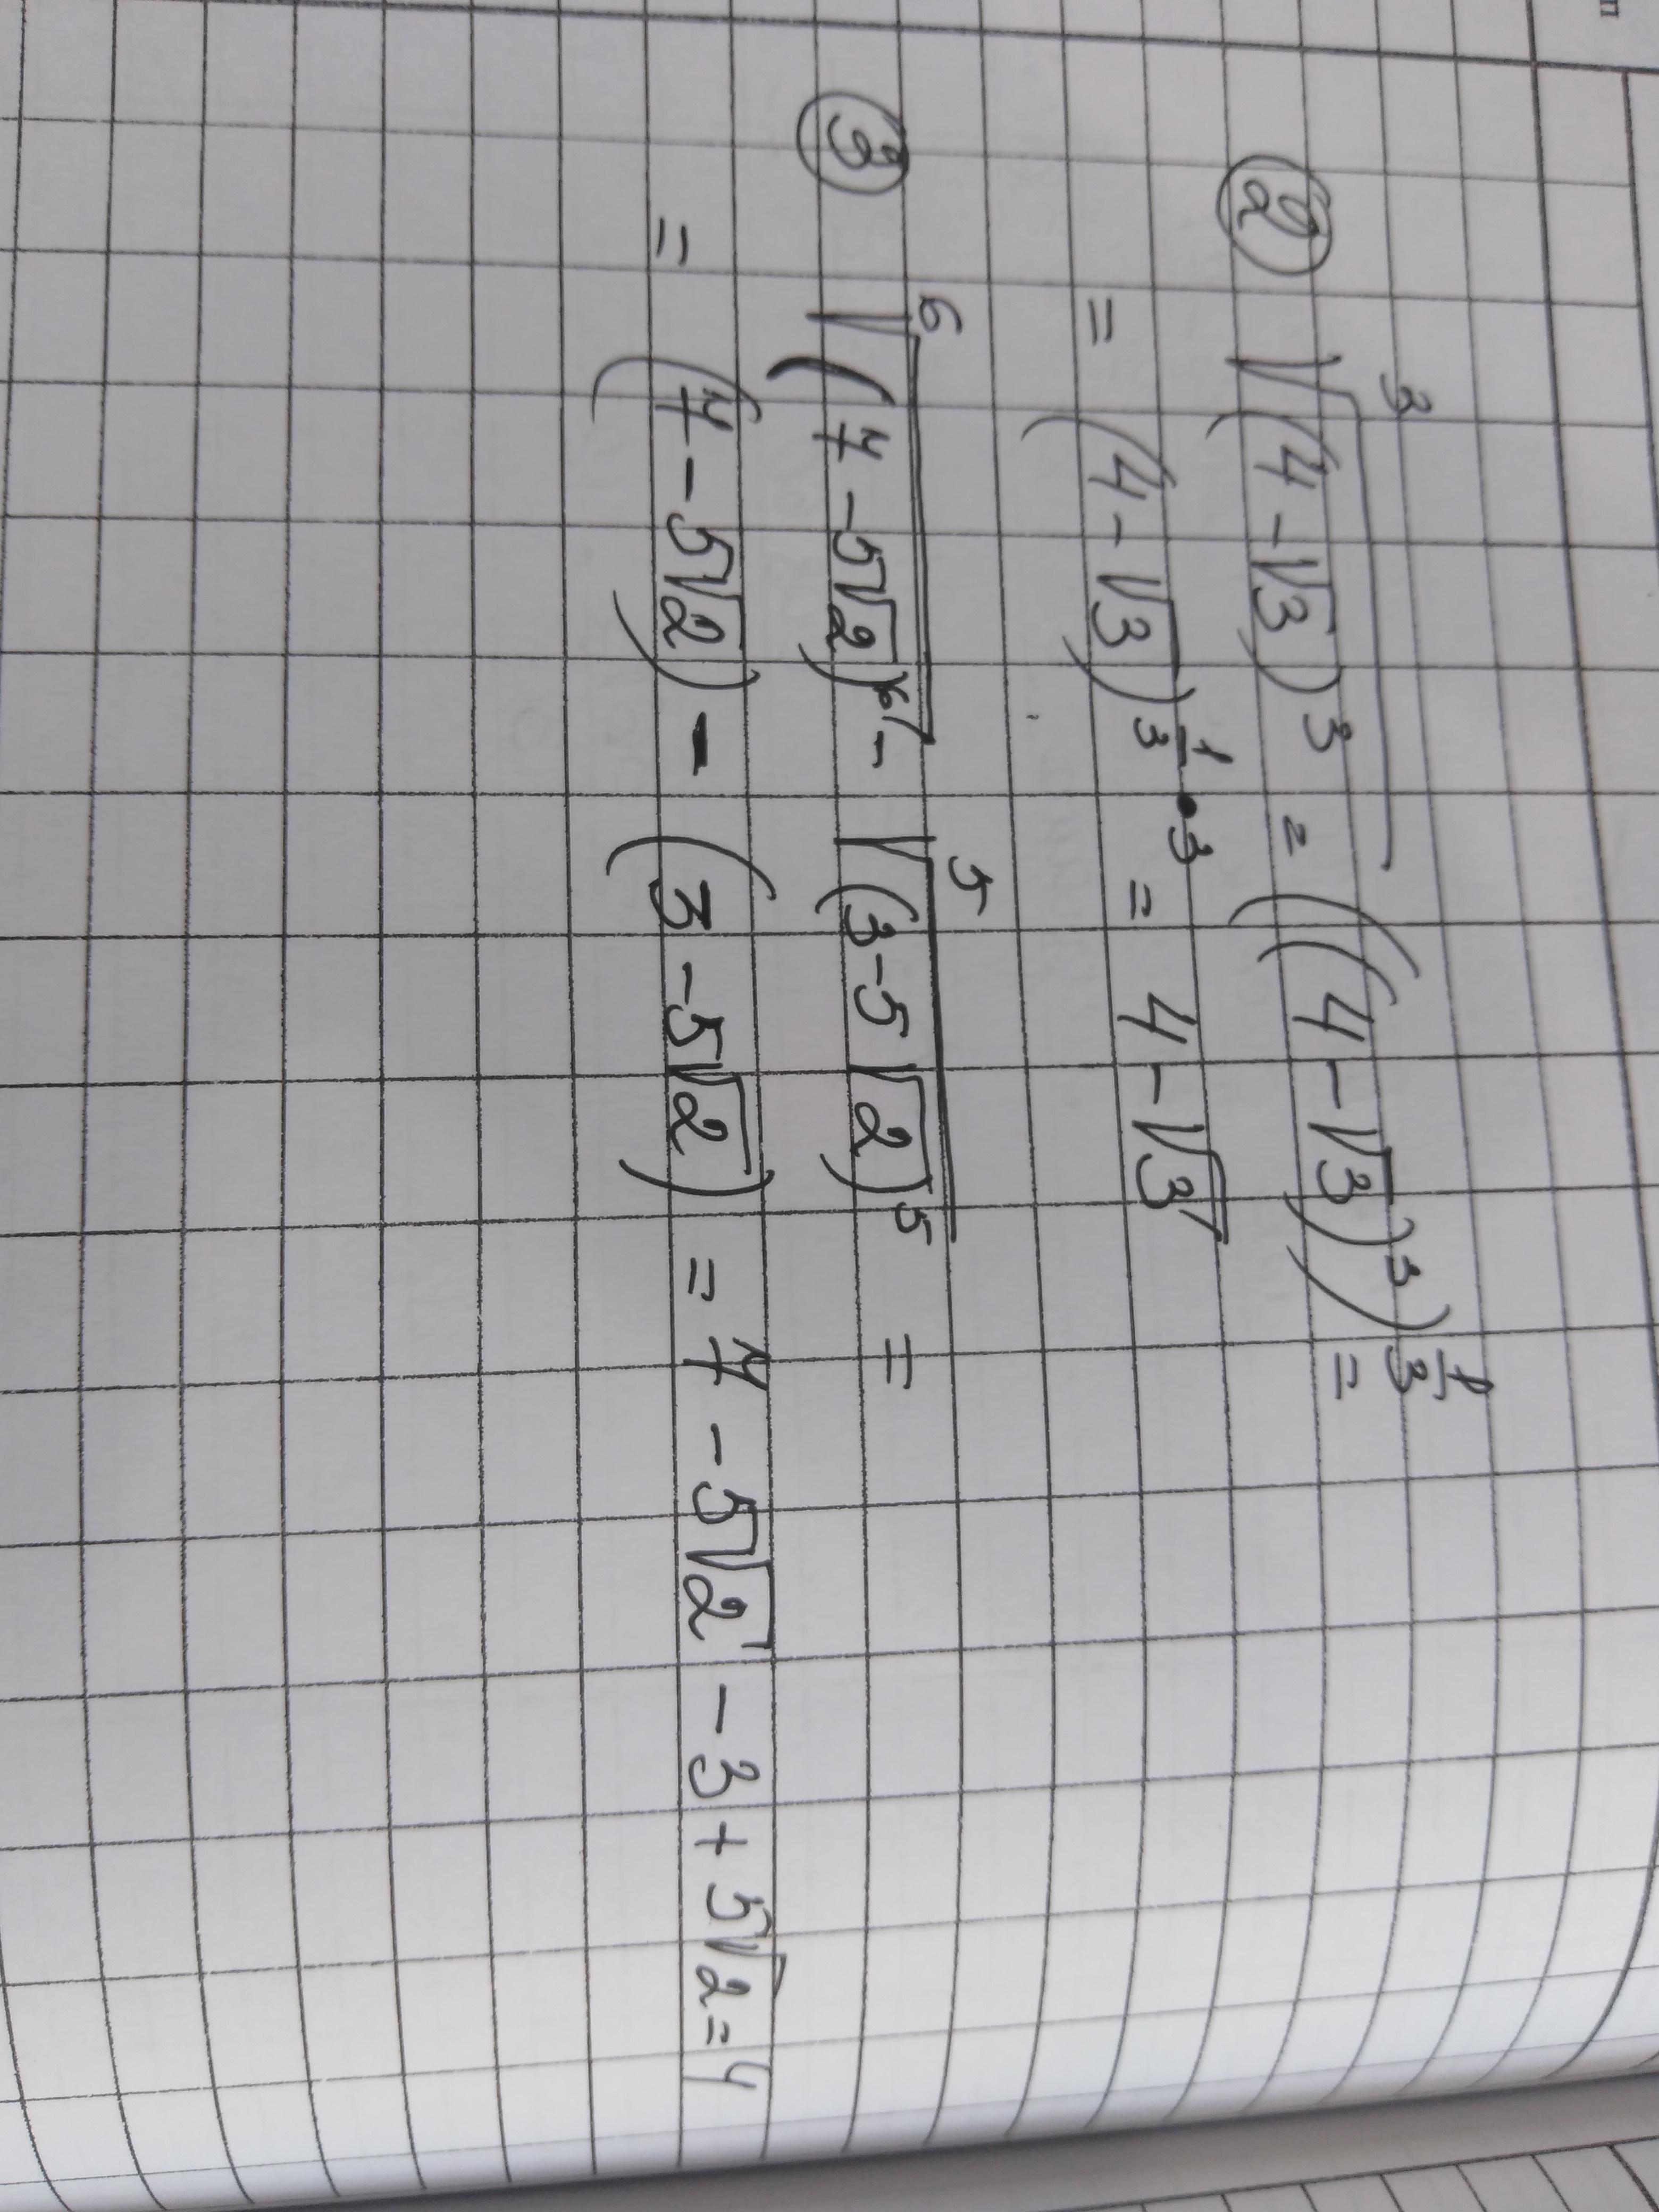 ② ∛((4-√3)³) = ((4-√3)³)^(1/3) =
= (4-√3)^(1/3 • 3) = 4-√3
③ ⁶√((7-5√2)⁶) - ⁵√((3-5√2)⁵) =
= (7-5√2) - (3-5√2) = 7-5√2-3+5√2=4